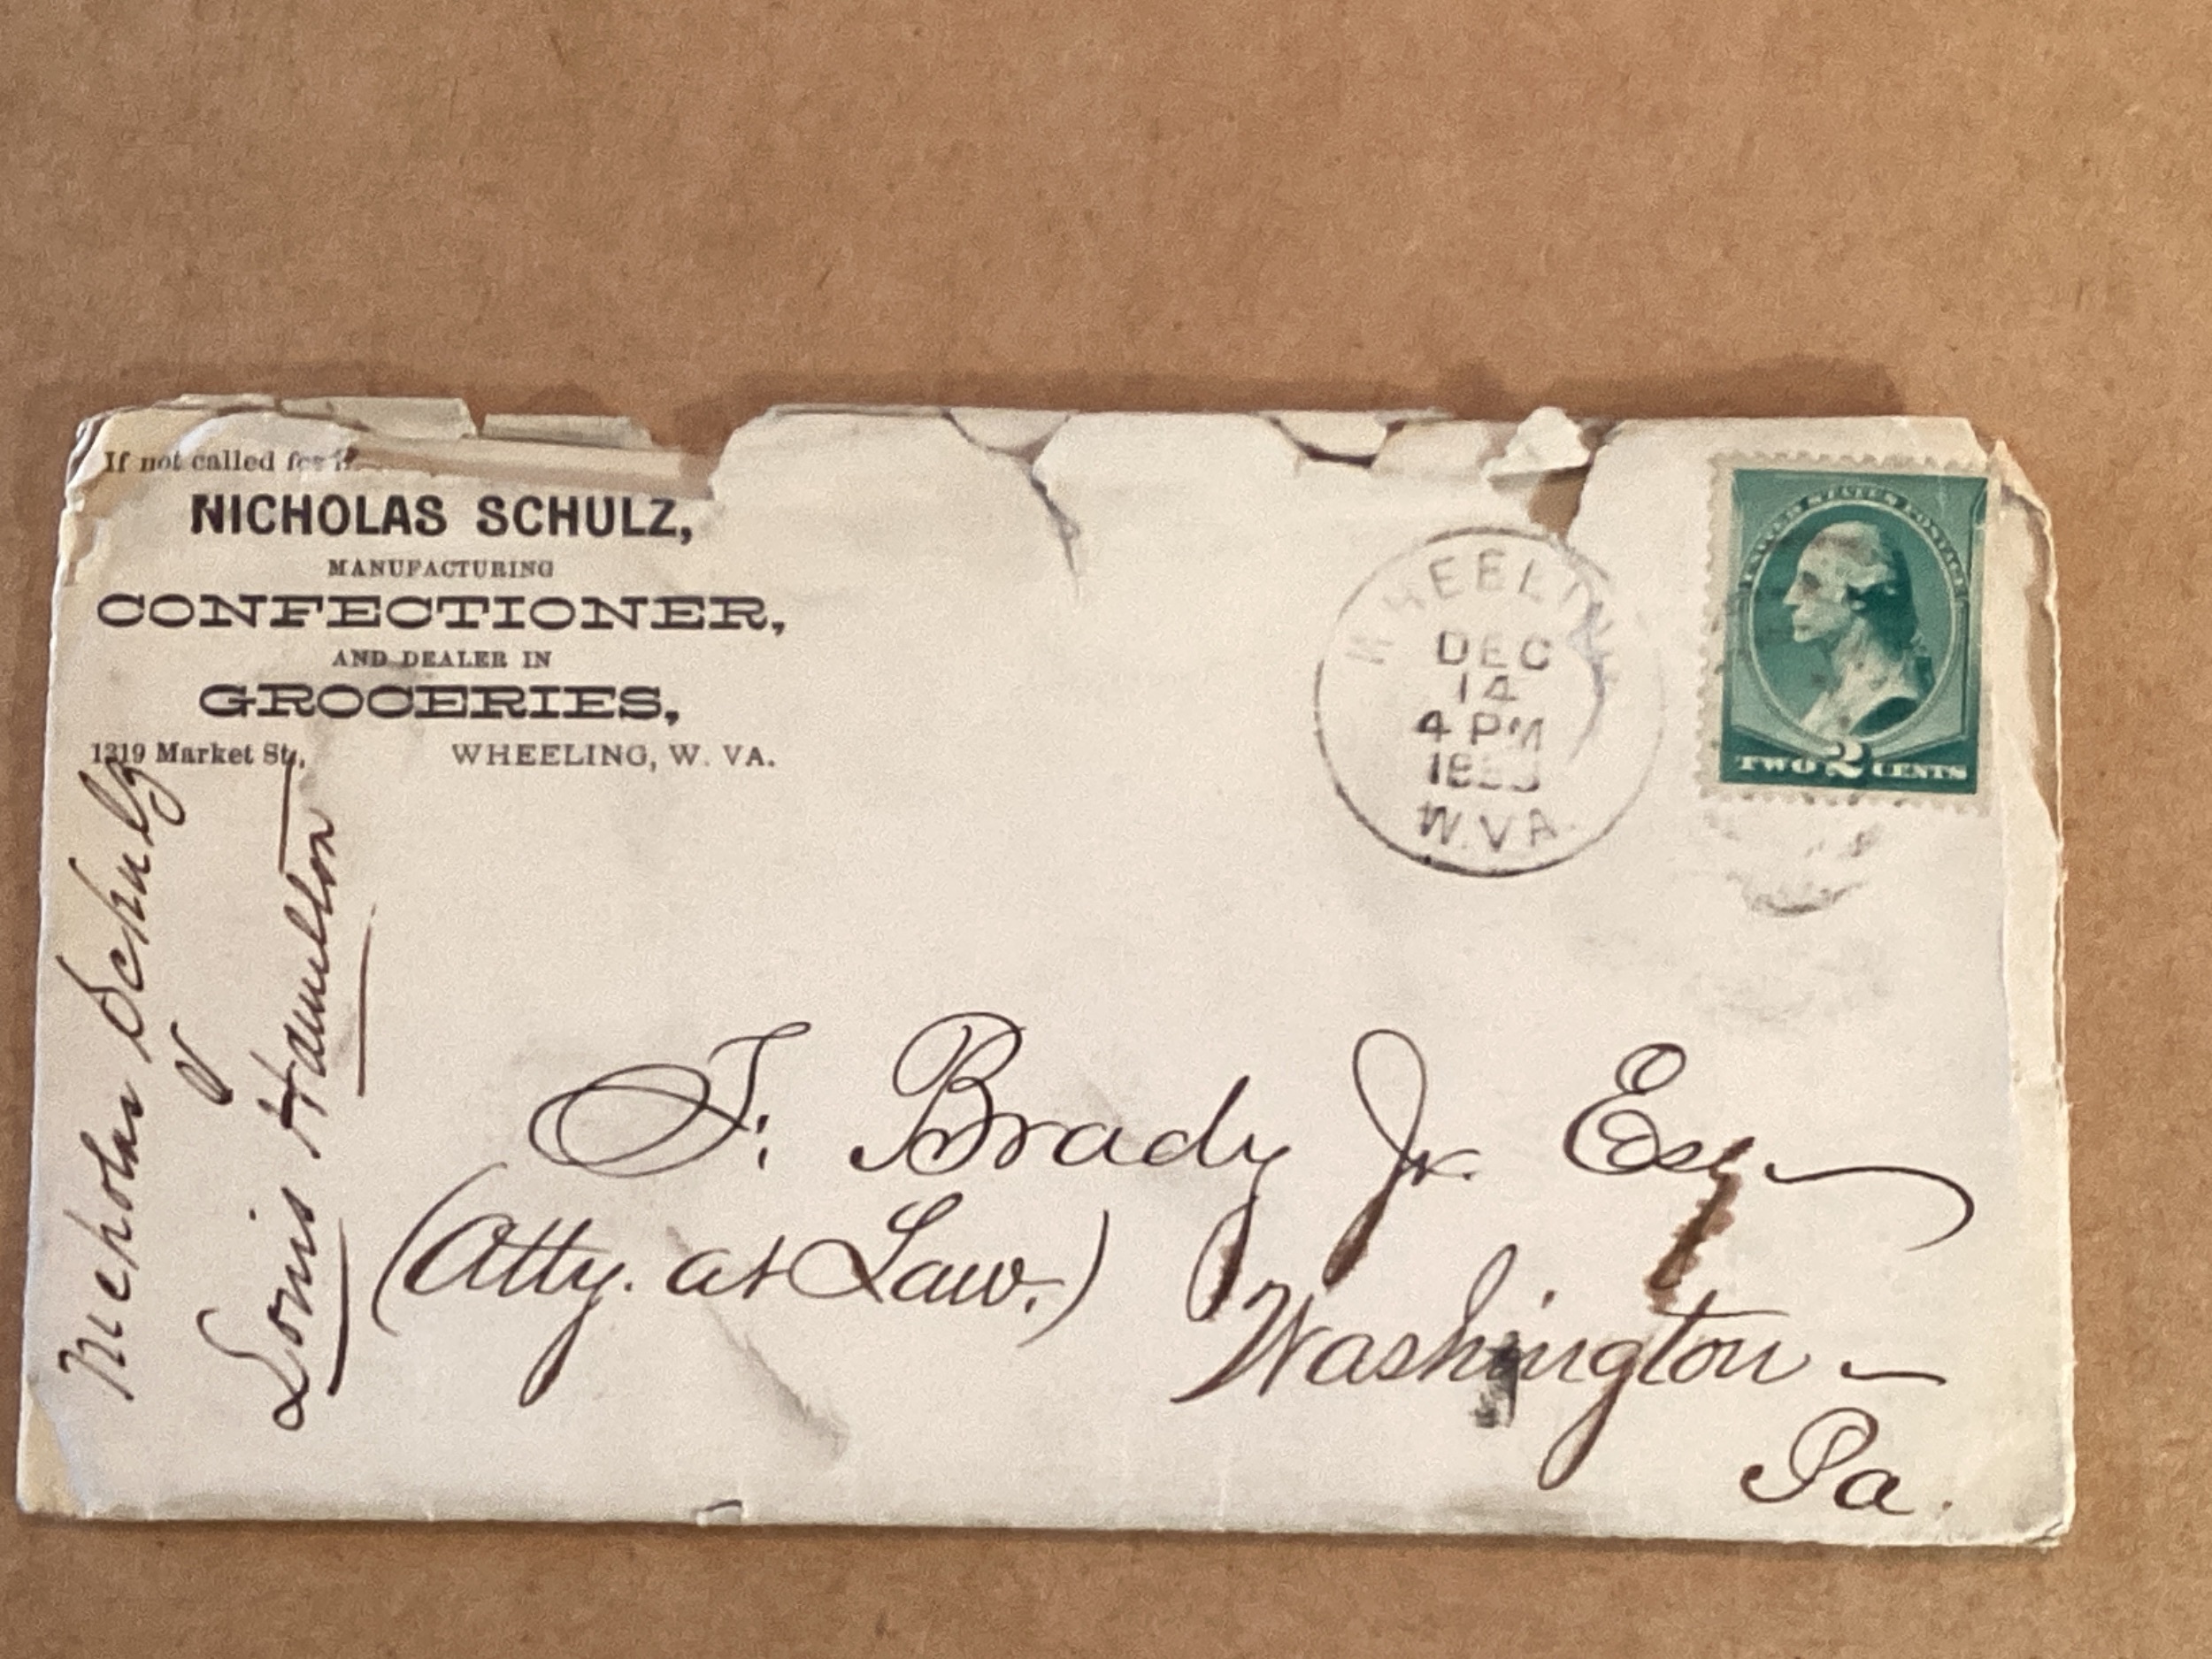 If not called for
NICHOLAS SCHULZ,
MANUFACTURING
CONFECTIONER,
AND DEALER IN
GROCERIES,
1319 Market St., WHEELING, W. VA.
WHEELING
DEC
14
4 PM
W.VA.
UNITED STATES POSTAGE
TWO 2 CENTS
Nicholas Schulz
v
Louis Hamilton
F. Brady Jr. Esq
(Atty. at Law.)
Washington
Pa.